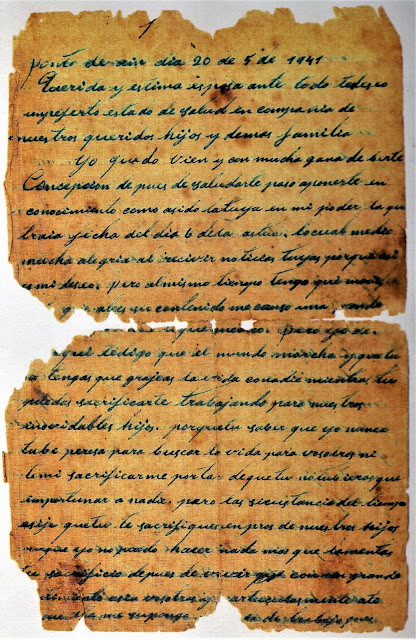 1
ponto de ain dia 20 de 5 de 1941
Querida y estima esposa ante todo tedeseo
un perferto estado de salud en compania de
nuestros queridos hijos y demas familia
Yo quedo vien y con mucha gana de berte
Concepcion depues de saludarle paso aponerte en
conocimiento como asido latuya en mi poder la que
traia fecha del dia 6 deta actua. locual medio
mucha alegria al recivir noticias tuyas porque
es mi deseo. pero almismo tiempo tengo que
que abes su contenido me causo una
que tedigo que el mundo marcha y que tu
tengas que la vida conadie mientras tu
puedas sacrificarte trabajando para nuestros
inorvidables hijos. porquetu saber que yo nunca
tube peresa para buscar la vida para vosotros ni
temi sacrificarme porta deque tu notubieras que
importunar a nadie. pero las sicustancia del tiempo
esije quetu te sacrifiques en pros de nuestros hijos
aunque yo no puedo hacer nada mas que lamentar
tu sacrificio depues de con un grande
vosotros y
me supongo destrabajo por